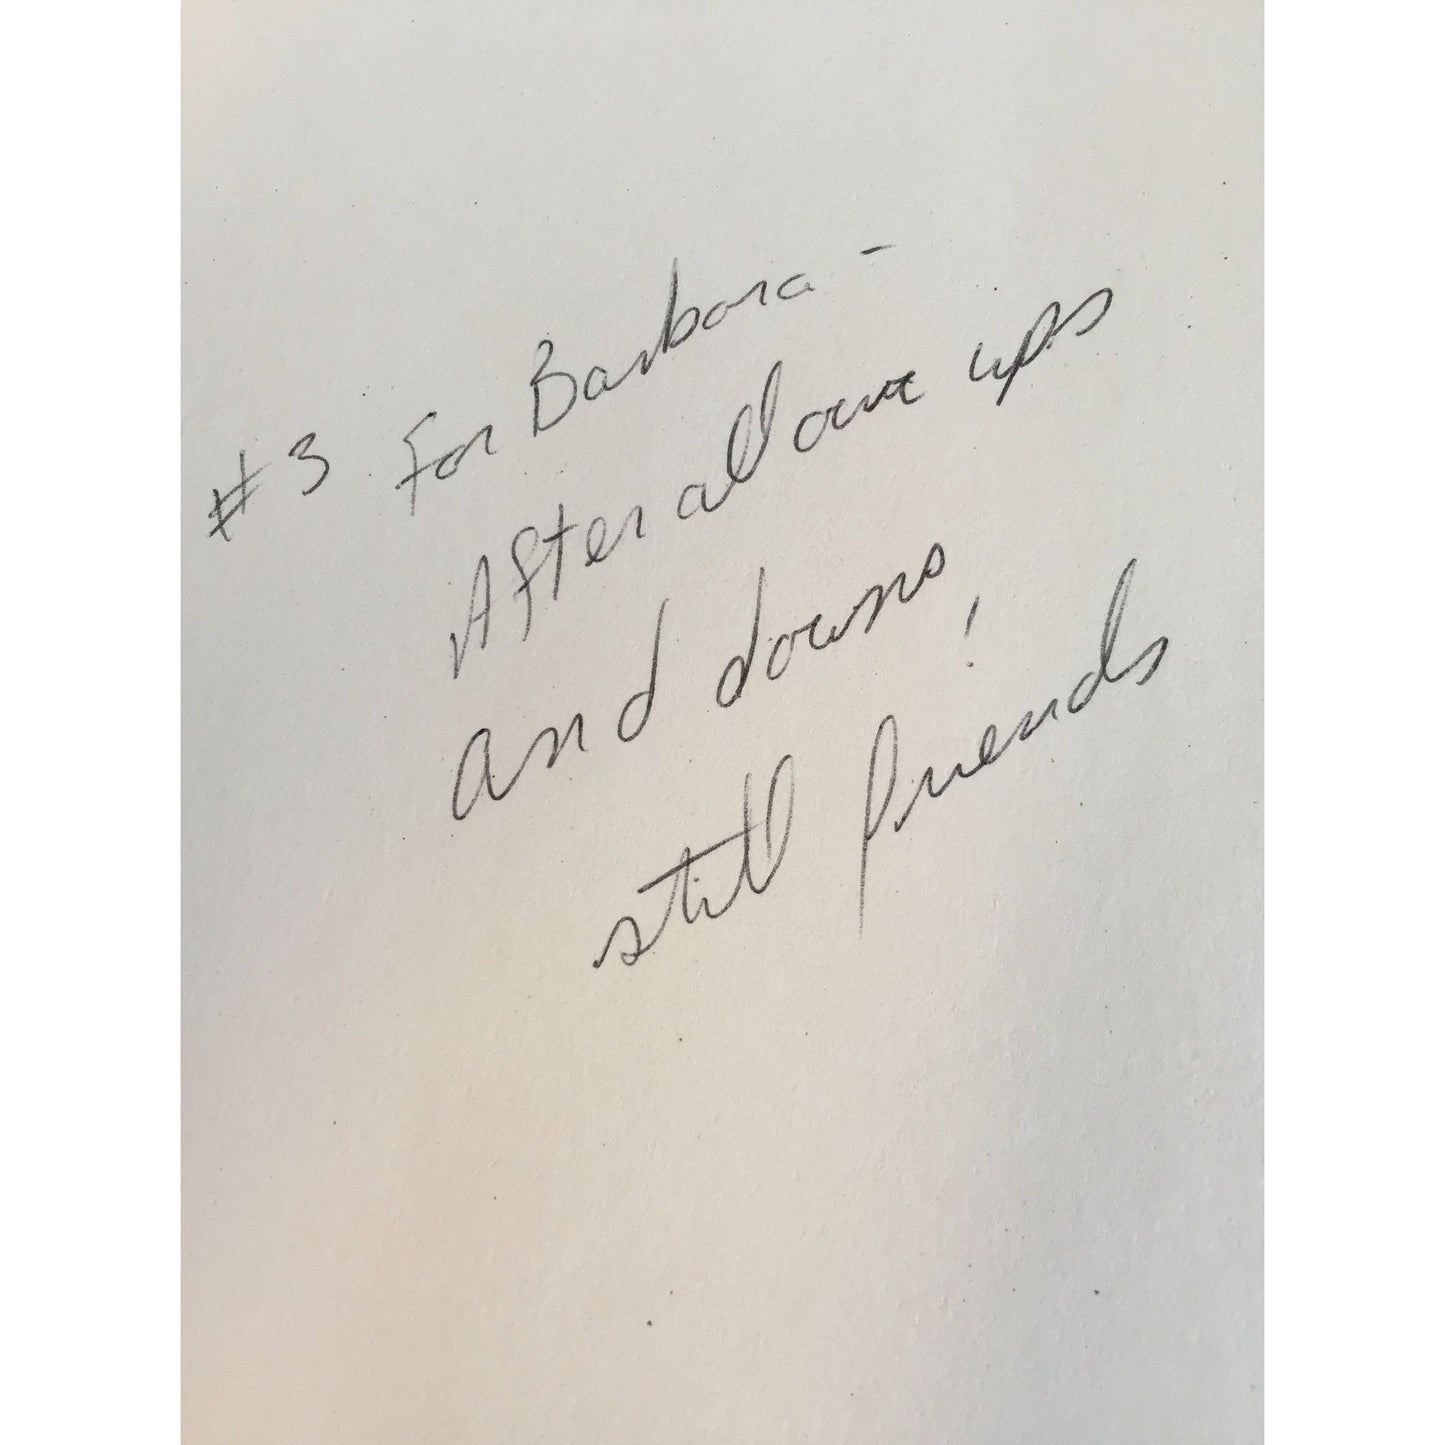 #3 For Barbara -
After all our ups
and downs,
still friends!